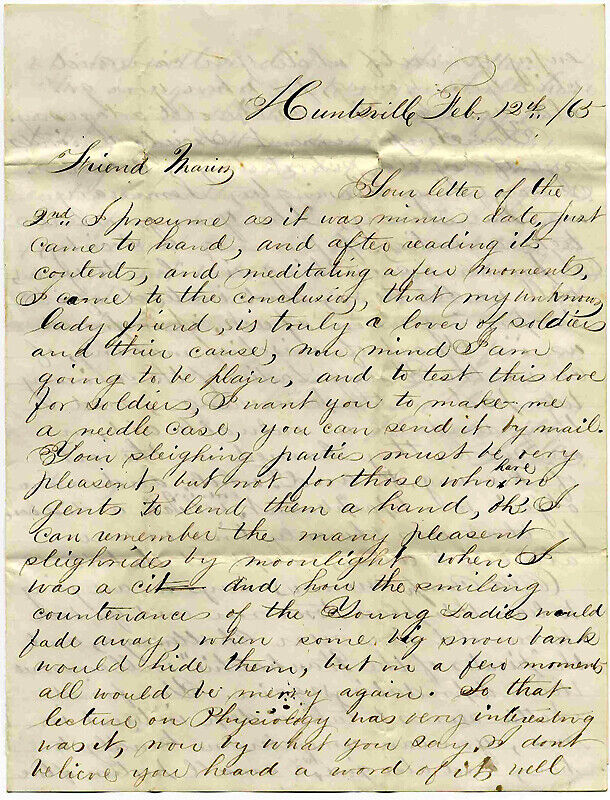 Huntsville Feb. 12th /65
Friend Marion,
Your letter of the
2nd I presume as it was minus date, just
came to hand, and after reading its
contents, and meditating a few moments,
I came to the conclusion, that my unknown
lady friend, is truly a lover of soldiers
and thier cause, now mind I am
going to be plain, and to test this love
for soldiers, I want you to make me
a needle case, you can send it by mail.
Your sleighing parties must be very
pleasent, but not for those who have no
gents to lend them a hand, Oh, I
can remember the many pleasent
sleighrides by moonlight when I
was a cit and how the smiling
countenances of the Young Ladies would
fade away, when some big snow bank
would hide them, but in a few moments
all would be merry again. So that
lecture on Physiology was very interesting
was it, now by what you say, I dont
believe you heard a word of it well